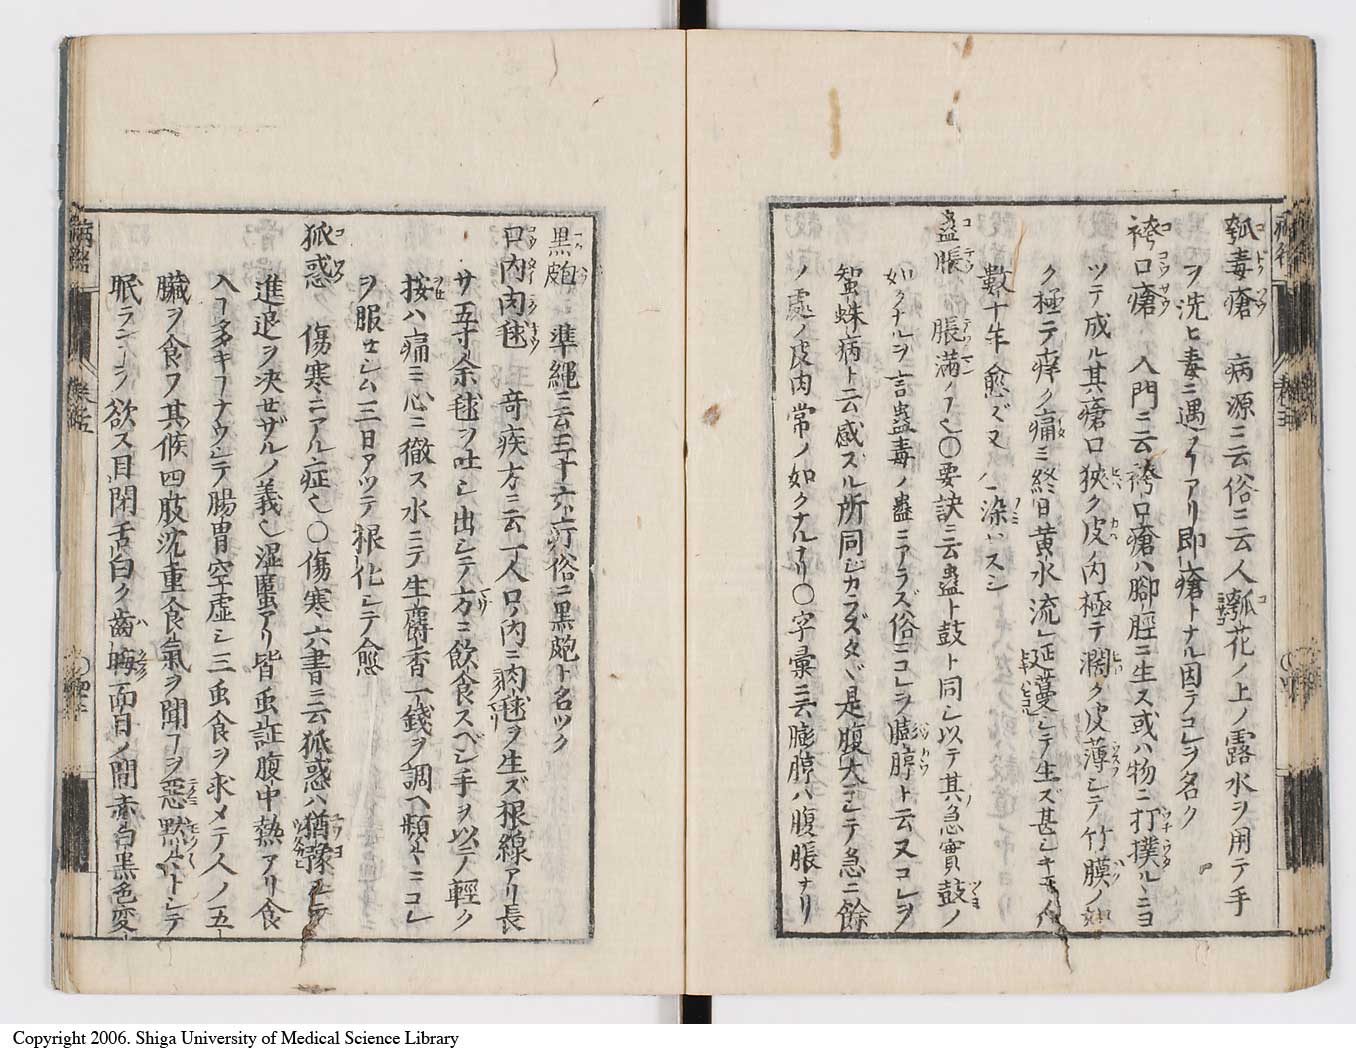 瓠毒瘡 病源ニ云俗ニ云人瓠花ノ上ノ露水ヲ用テ手
ヲ洗ヒ毒ニ遇フヿアリ即瘡トナル因テコレヲ名ク
袴口瘡 入門ニ云袴口瘡ハ脚脛ニ生ス或ハ物ニ打撲ルヽニヨ
ツテ成ル其瘡口狹ク皮内極テ濶ク皮薄シテ竹膜ノ如
ク極テ痒ク痛ミ終日黄水流レ延蔓シテ生ズ甚シキモノハ
數十年愈ズ又人ニ染ハスシ
蠱脹 脹滿ノヿ也〇要訣ニ云蠱ト鼓ト同シ以テ其急實鼓ノ
如クナルヲ言蠱毒ノ蠱ニアラズ俗ニコレヲ膨脝ト云又コレヲ
蜘蛛病ト云感スル所同シカラズタヾ是腹大ニシテ急ニ餘
ノ處ノ皮肉常ノ如クナルナリ〇字彙ニ云膨脝ハ腹脹ナリ
黒皰 準繩ニ云三十六疔俗ニ黒皰ト名ツク
口内肉毬 奇疾方ニ云一人口ノ内ニ肉毬ヲ生ズ根線アリ長
サ五寸余毬ヲ吐シ出シテ方ニ飲食スベシ手ヲ以テ輕ク
按ハ痛ミ心ニ徹ス水ニテ生麝香一錢ヲ調ヘ頻々ニコレ
ヲ服セシム三日アツテ根化シテ愈
狐惑 傷寒ニアル症也〇傷寒六書ニ云狐惑ハ猶豫シテ
進退ヲ决せザルノ義也湿䘌アリ皆虫証腹中熱アリ食
入ヿ多キヿナクシテ腸胃空虚シ三虫食ヲ求メテ人ノ五
臓ヲ食フ其候四肢沈重食氣ヲ聞ヿヲ惡黙々トシテ
眠ランヿヲ欲ス目閉舌白ク齒晦面目ノ間赤白黒色変
Copyright 2006. Shiga University of Medical Science Library